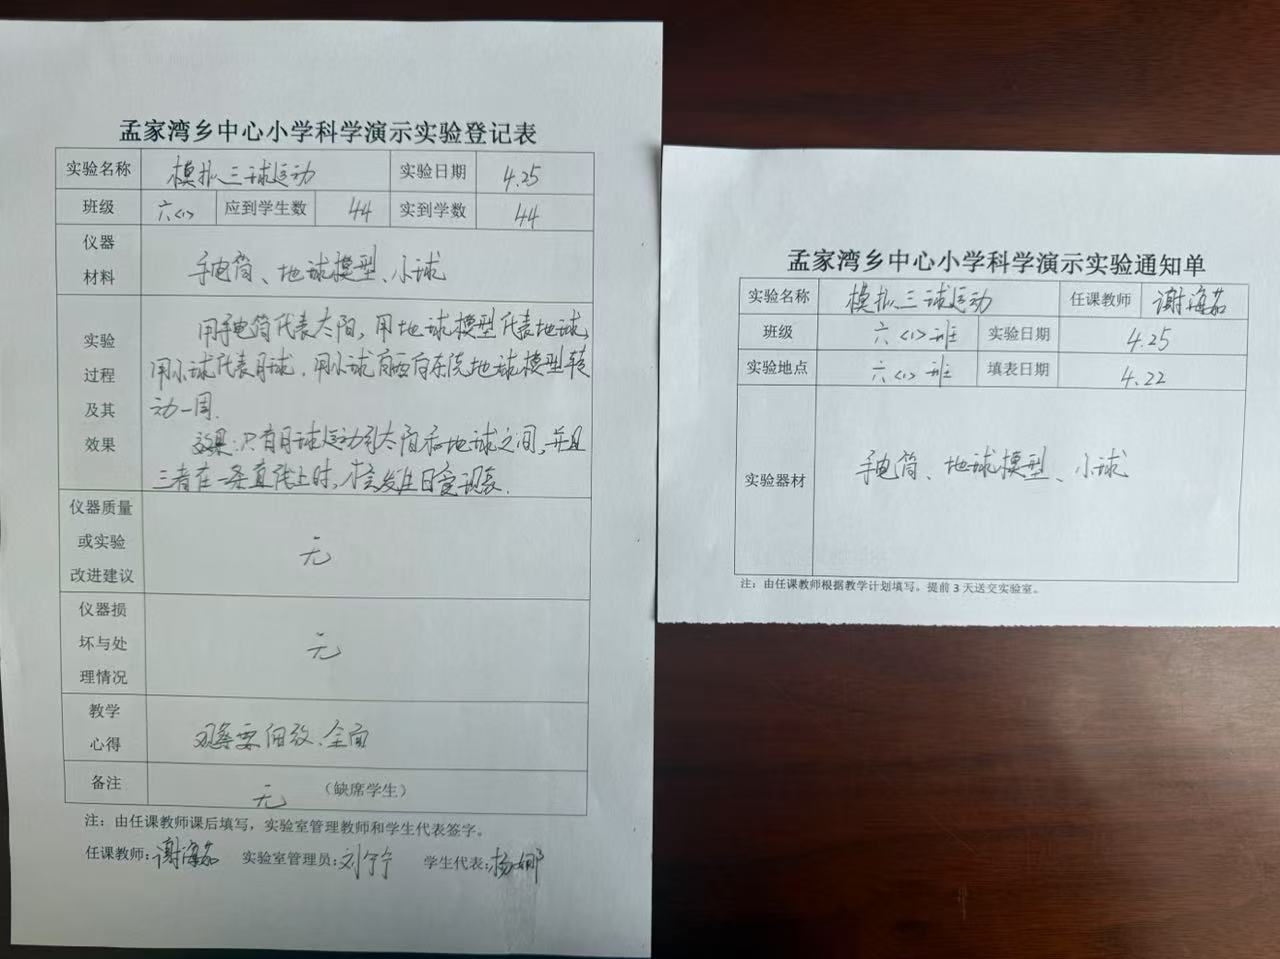 孟家湾乡中心小学科学演示实验登记表
实验名称 模拟三球运动 实验日期 4.25
班级 六<1> 应到学生数 44 实到学数 44
仪器
材料
手电筒、地球模型、小球
实验
过程
及其
效果
用手电筒代表太阳，用地球模型代表地球，
用小球代表月球，用小球自西向东绕地球模型转
动一周.
效果：只有月球运动到太阳和地球之间，并且
三者在一条直线上时，才会发生日食现象.
仪器质量
或实验
改进建议
无
仪器损
坏与处
理情况
无
教学
心得
观察要细致、全面
备注 无 （缺席学生）
注：由任课教师课后填写，实验室管理教师和学生代表签字。
任课教师：谢海茹 实验室管理员：刘宁宁 学生代表：杨娜
孟家湾乡中心小学科学演示实验通知单
实验名称 模拟三球运动 任课教师 谢海茹
班级 六<1>班 实验日期 4.25
实验地点 六<1>班 填表日期 4.22
实验器材 手电筒、地球模型、小球
注：由任课教师根据教学计划填写。提前 3 天送交实验室。